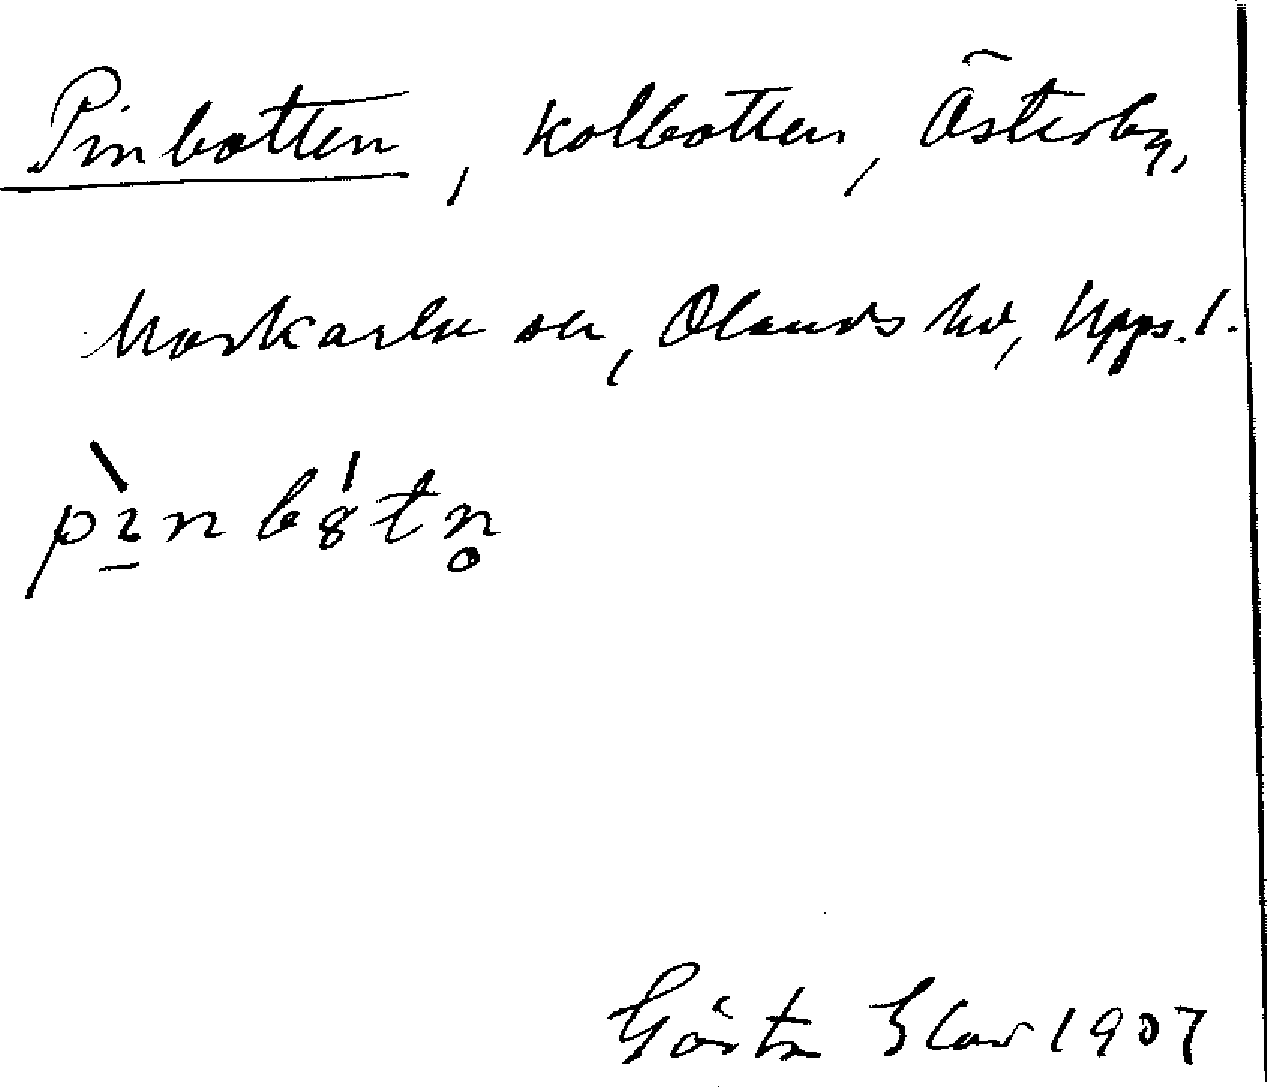 Pinbotten, kolbotten, Österby,
Morkarla sn, Olands hd, Uppl.
pìnbʹ8tn̥
Gösta 1907